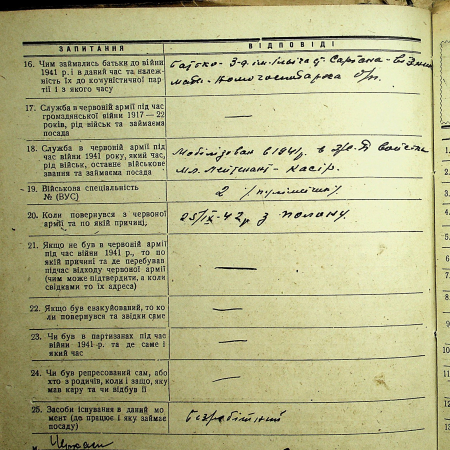 ЗАПИТАННЯ
ВІДПОВІДІ
16. Чим займались батьки до війни
1941 р. і в даний час та належ-
ність їх до комуністичної пар-
тії і з якого часу
Батько - З-д ім. Ілліча
мати - Домогосподарка б/п.
17. Служба в червоній армії під час
громадянської війни 1917—22
років, рід військ та займаєма
посада
—
18. Служба в червоній армії під
час війни 1941 року, який час,
рід військ, останнє військове
звання та займаєма посада
Мобілізован в 1941 р. в
Мл. Лейтенант - касір.
19. Військова спеціальність
№ (ВУС)
2 /пулімётчик/
20. Коли повернувся з червоної
армії та по якій причині,
25/IX-42 р з полону
21. Якщо не був в червоній армії
під час війни 1941 р., то по
якій причині та де перебував
підчас відходу червоної армії
(чим може підтвердити, а коли
свідками то їх адреса)
—
22. Якщо був евакуйований, то ко-
ли повернувся та звідки саме
—
23. Чи був в партизанах під час
війни 1941 р. та де саме і
який час
—
24. Чи був репресований сам, або
хто з родичів, коли і защо, яку
мав кару та чи відбув її
—
25. Засоби існування в даний мо-
мент (де працює і яку займає
посаду)
Безробітний